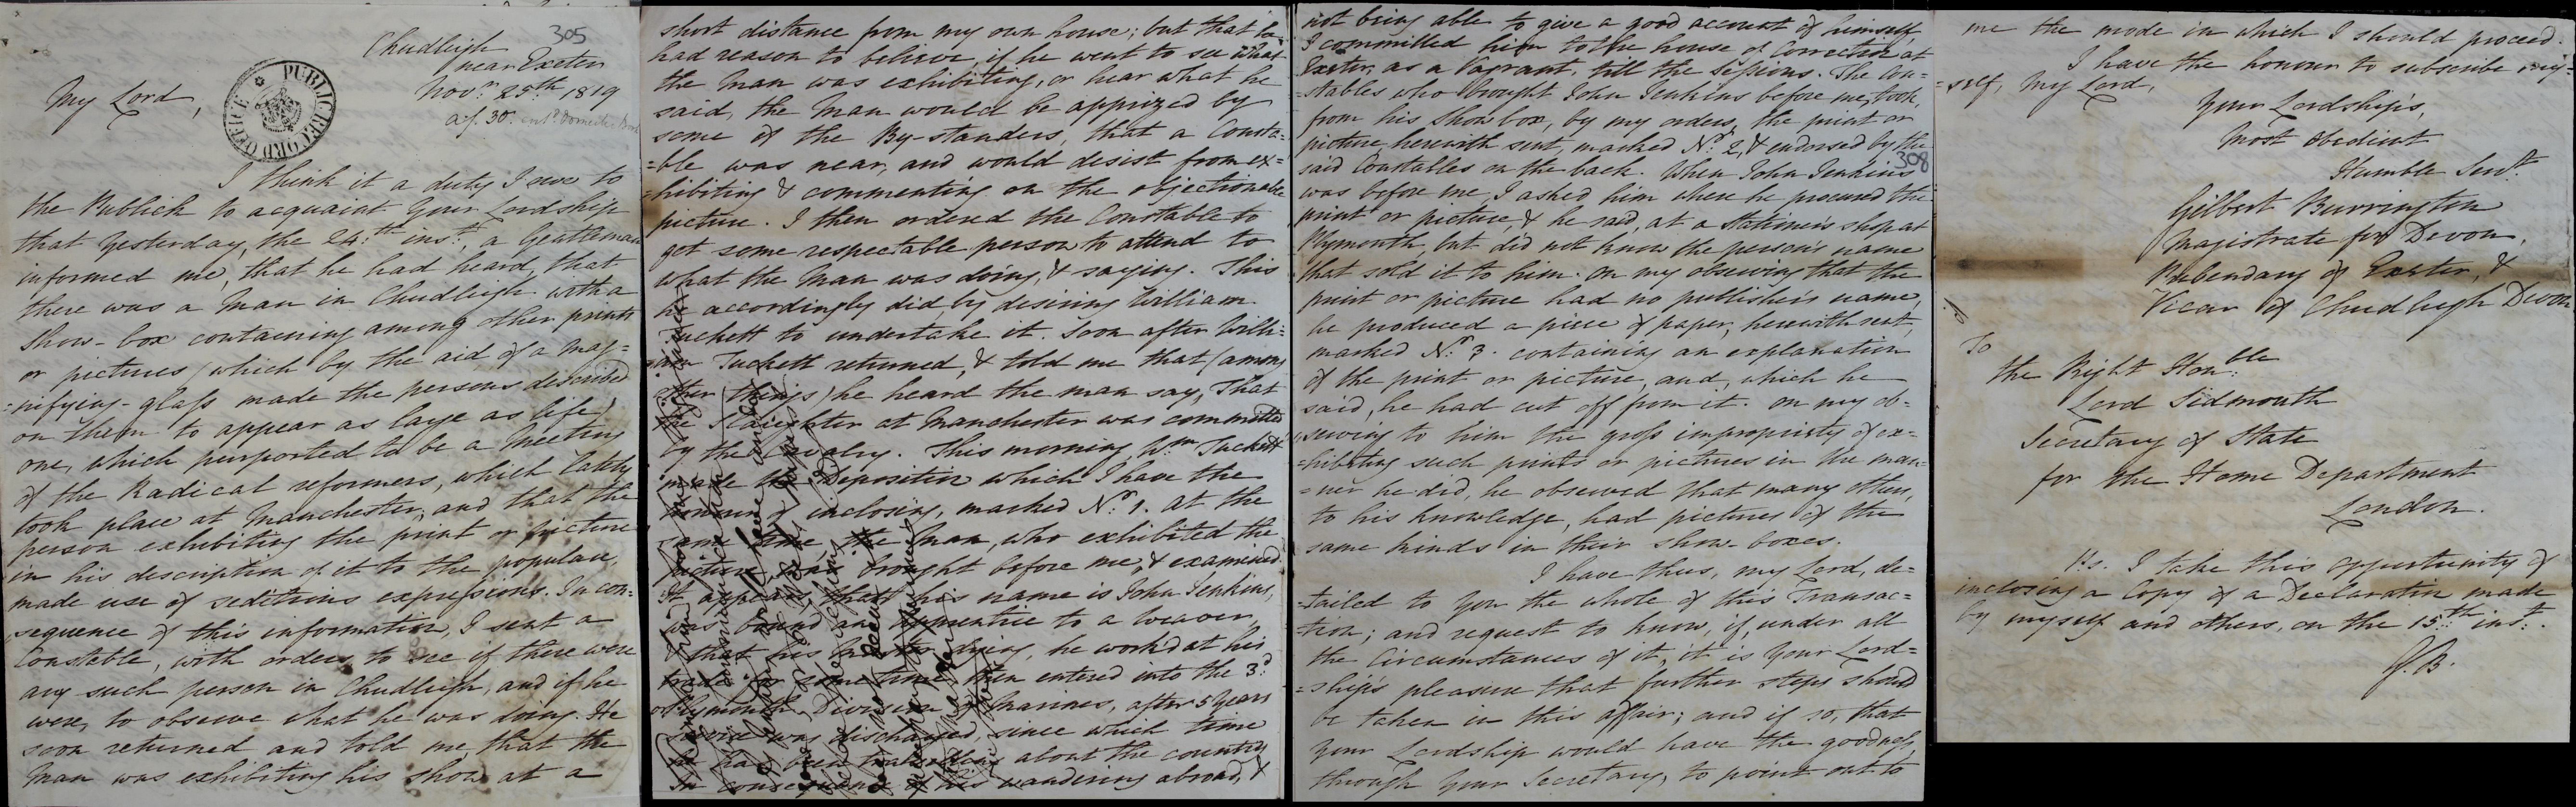 305
Chudleigh
near Exeter
Novr. 25th 1819
af. 30.
My Lord,
PUBLIC RECORD OFFICE
I think it a duty I owe to
the Publick to acquaint Your Lordship
that Yesterday, the 24.th inst., a Gentleman
informed me, that he had heard, that
there was a Man in Chudleigh with a
Show-box containing among other prints
or pictures (which by the aid of a mag=
=nifying-glass made the persons described
on them to appear as large as life)
one, which purported to be a Meeting
of the Radical reformers, which lately
took place at Manchester, and that the
person exhibiting the print or picture
in his description of it to the populace,
made use of seditious expressions. In con=
sequence of this information, I sent a
Constable, with orders to see if there were
any such person in Chudleigh, and if he
were, to observe what he was doing. He
soon returned and told me, that the
Man was exhibiting his show at a
short distance from my own house; but that he
had reason to believe, if he went to see what
the Man was exhibiting, or hear what he
said, the Man would be apprized by
some of the By-standers, that a Consta=
=ble was near, and would desist from ex=
=hibiting & commenting on the objectionable
picture. I then ordered the Constable to
get some respectable person to attend to
what the Man was doing, & saying. This
he accordingly did, by desiring William
Tuckett to undertake it. Soon after Willi=
=am Tuckett returned, & told me that (among
other things) he heard the man say, That
the Slaughter at Manchester was committed
by the Cavalry. This morning, Wm. Tuckett
made the Deposition which I have the
honour of inclosing, marked No. 1. At the
same time the Man, who exhibited the
picture was brought before me, & examined.
It appears, that his name is John Jenkins,
was bound an Apprentice to a weaver,
& that his Master dying, he work'd at his
trade for some time, then entered into the 3d.
Plymouth Division of Marines, after 5 Years
service was discharged, since which time
he has been travelling about the country
In consequence of his wandering abroad, &
not being able to give a good account of himself,
I committed him to the house of Correction at
Exeter, as a Vagrant, till the Sessions. The Con=
=stables who brought John Jenkins before me, took,
from his Show box, by my orders, the print or
picture, herewith sent, marked No. 2, & endorsed by the
said Constables on the back. When John Jenkins
308
was before me, I asked him where he procured the
print or picture, & he said, at a Stationer's shop at
Plymouth, but did not know the person's name
that sold it to him. On my observing that the
print or picture had no publisher's name,
he produced a piece of paper, herewith sent,
marked No. 3. containing an explanation
of the print or picture, and, which he
said, he had cut off from it. On my ob=
serving to him the gross impropriety of ex=
=hibiting such prints or pictures in the man=
=ner he did, he observed that many others,
to his knowledge, had pictures of the
same kinds in their show-boxes.
I have thus, my Lord, de=
=tailed to you the whole of this Transac=
=tion; and request to know, if, under all
the Circumstances of it, it is Your Lord=
=ship's pleasure that further steps should
be taken in this affair; and if so, that
Your Lordship would have the goodness,
through Your Secretary, to point out to
me the mode in which I should proceed.
I have the honour to subscribe my=
=self, My Lord,
Your Lordship's,
Most Obedient
Humble Servt.
Gilbert Burrington
Magistrate for Devon,
Prebendary of Exeter, &
Vicar of Chudleigh Devon
To
the Right Hon:ble
Lord Sidmouth
Secretary of State
for the Home Department
London.
P.s. I take this opportunity of
inclosing a Copy of a Declaration made
by myself and others, on the 15th inst.
G.B.